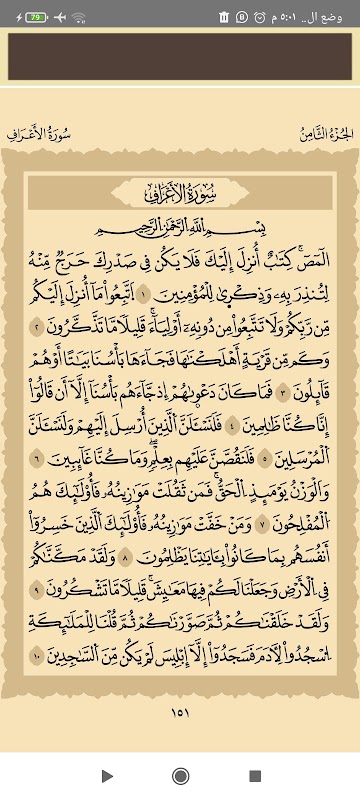 وضع ال.. ٥:٠١ م
79
الجزء الثامن
سورة الأعراف
سورة الأعراف
بسم الله الرحمن الرحيم
الٓمٓصٓ ۚ كِتَٰبٌ أُنزِلَ إِلَيْكَ فَلَا يَكُن فِى صَدْرِكَ حَرَجٌ مِّنْهُ
لِتُنذِرَ بِهِۦ وَذِكْرَىٰ لِلْمُؤْمِنِينَ ١ ٱتَّبِعُوا۟ مَآ أُنزِلَ إِلَيْكُم
مِّن رَّبِّكُمْ وَلَا تَتَّبِعُوا۟ مِن دُونِهِۦٓ أَوْلِيَآءَ ۗ قَلِيلًا مَّا تَذَّكَّرُونَ ٢
وَكَم مِّن قَرْيَةٍ أَهْلَكْنَٰهَا فَجَآءَهَا بَأْسُنَا بَيَٰتًا أَوْ هُمْ
قَآئِلُونَ ٣ فَمَا كَانَ دَعْوَىٰهُمْ إِذْ جَآءَهُم بَأْسُنَآ إِلَّآ أَن قَالُوٓا۟
إِنَّا كُنَّا ظَٰلِمِينَ ٤ فَلَنَسْـَٔلَنَّ ٱلَّذِينَ أُرْسِلَ إِلَيْهِمْ وَلَنَسْـَٔلَنَّ
ٱلْمُرْسَلِينَ ٥ فَلَنَقُصَّنَّ عَلَيْهِم بِعِلْمٍ ۖ وَمَا كُنَّا غَآئِبِينَ ٦
وَٱلْوَزْنُ يَوْمَئِذٍ ٱلْحَقُّ ۚ فَمَن ثَقُلَتْ مَوَٰزِينُهُۥ فَأُو۟لَٰٓئِكَ هُمُ
ٱلْمُفْلِحُونَ ٧ وَمَنْ خَفَّتْ مَوَٰزِينُهُۥ فَأُو۟لَٰٓئِكَ ٱلَّذِينَ خَسِرُوٓا۟
أَنفُسَهُم بِمَا كَانُوا۟ بِـَٔايَٰتِنَا يَظْلِمُونَ ٨ وَلَقَدْ مَكَّنَّٰكُمْ
فِى ٱلْأَرْضِ وَجَعَلْنَا لَكُمْ فِيهَا مَعَٰيِشَ ۗ قَلِيلًا مَّا تَشْكُرُونَ ٩
وَلَقَدْ خَلَقْنَٰكُمْ ثُمَّ صَوَّرْنَٰكُمْ ثُمَّ قُلْنَا لِلْمَلَٰٓئِكَةِ
ٱسْجُدُوا۟ لِـَٔادَمَ فَسَجَدُوٓا۟ إِلَّآ إِبْلِيسَ لَمْ يَكُن مِّنَ ٱلسَّٰجِدِينَ ١٠
١٥١